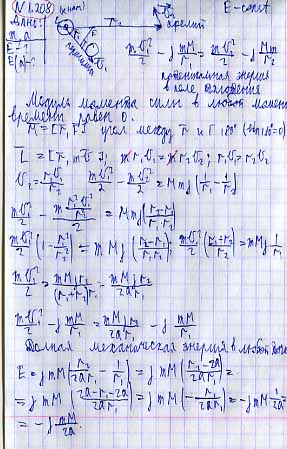 (N 1.208)
E - const
Дано:
m, a
E - ?
E(a) - ?
r₂
υ₂
υ₁
mυ₁²/2 - γ mM/r₁ = mυ₂²/2 - γ Mm/r₂
потенциальная энергия
в поле тяготения
Модуль момента силы в любой момент
времени равен 0.
M = [r, F] угол между r и F 180° (sin 180° = 0)
L = [r, mυ]; m r₁υ₁ = m r₂υ₂; r₁υ₁ = r₂υ₂
υ₂ = r₁υ₁/r₂ mυ₁²/2 - mυ₂²/2 = Mmγ(1/r₁ - 1/r₂)
mυ₁²/2 - m r₁²υ₁²/2r₂² = Mmγ(r₂-r₁/r₁r₂)
mυ₁²/2 (1 - r₁²/r₂²) = mMγ(r₂-r₁/r₁r₂); mυ₁²/2 (r₁+r₂/r₂) = mMγ 1/r₁
mυ₁²/2 = mMγr₂/(r₁+r₂)r₁ = mMγr₂/2ar₁
mυ₁²/2 - γ mM/r₁ = mMγr₂/2ar₁ - γ mM/r₁
Полная механическая энергия в любой точке
E = γmM(r₂/2ar₁ - 1/r₁) = γmM(r₂-2a/2ar₁) =
= γmM(2a-r₁-2a/2ar₁) = γmM(-r₁/2ar₁) = -γmM 1/2a =
= -γ mM/2a